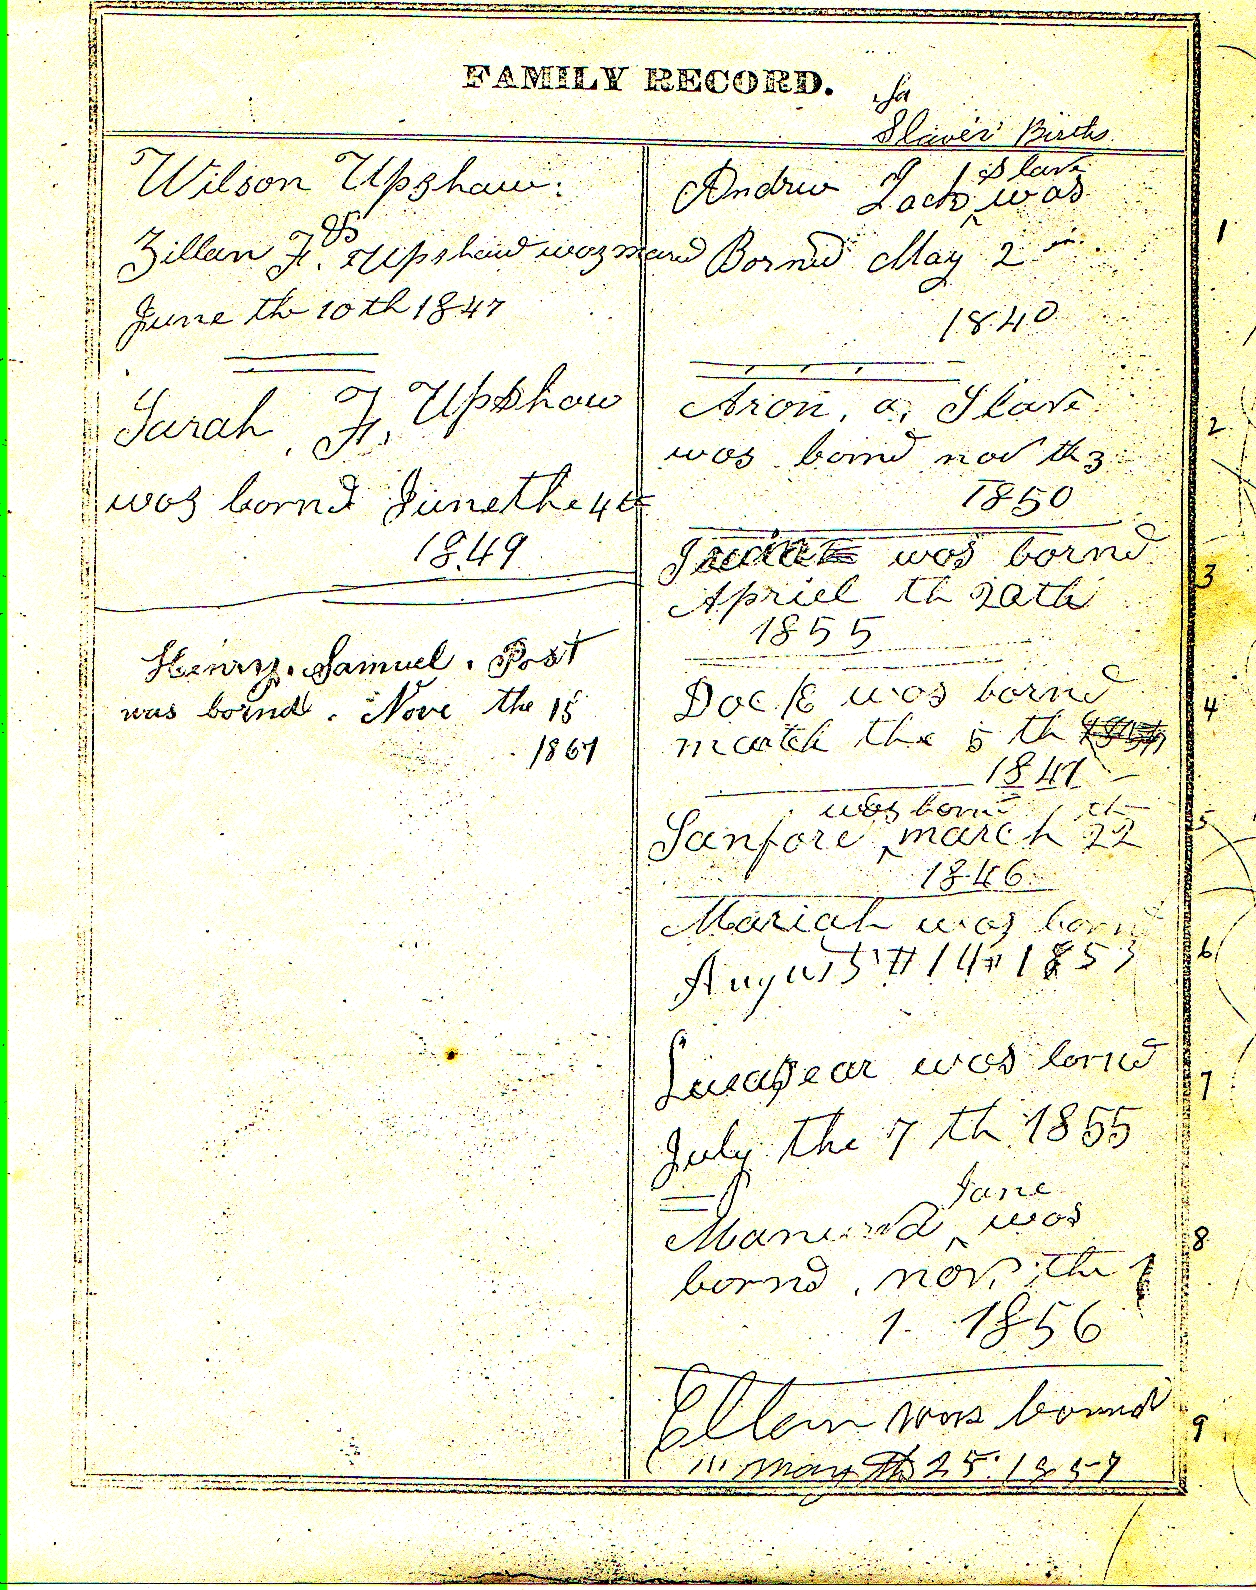 FAMILY RECORD.
Slaves' Births
Wilson Upshaw:
Zillan F. Upshaw was mared
June the 10th 1847
Sarah F. Upshaw
was bornd June the 4th
1849
Henry. Samuel. Post
was bornd. Nove the 15
1867
Andrew Zack, slave
was
Bornd May 2
1840
1
Aron, a, Slave
was bornd nov th 3
1850
2
was bornd
Apriel th 20th
1855
3
Doc was bornd
march the 5 th
1847
4
was bornd
Sanford march 22
1846
5
Mariah was bornd
August 14 1853
6
was bornd
July the 7 th 1855
7
Jane
was
bornd. nov, the
1. 1856
8
Ellen was bornd
may th 25. 1857
9